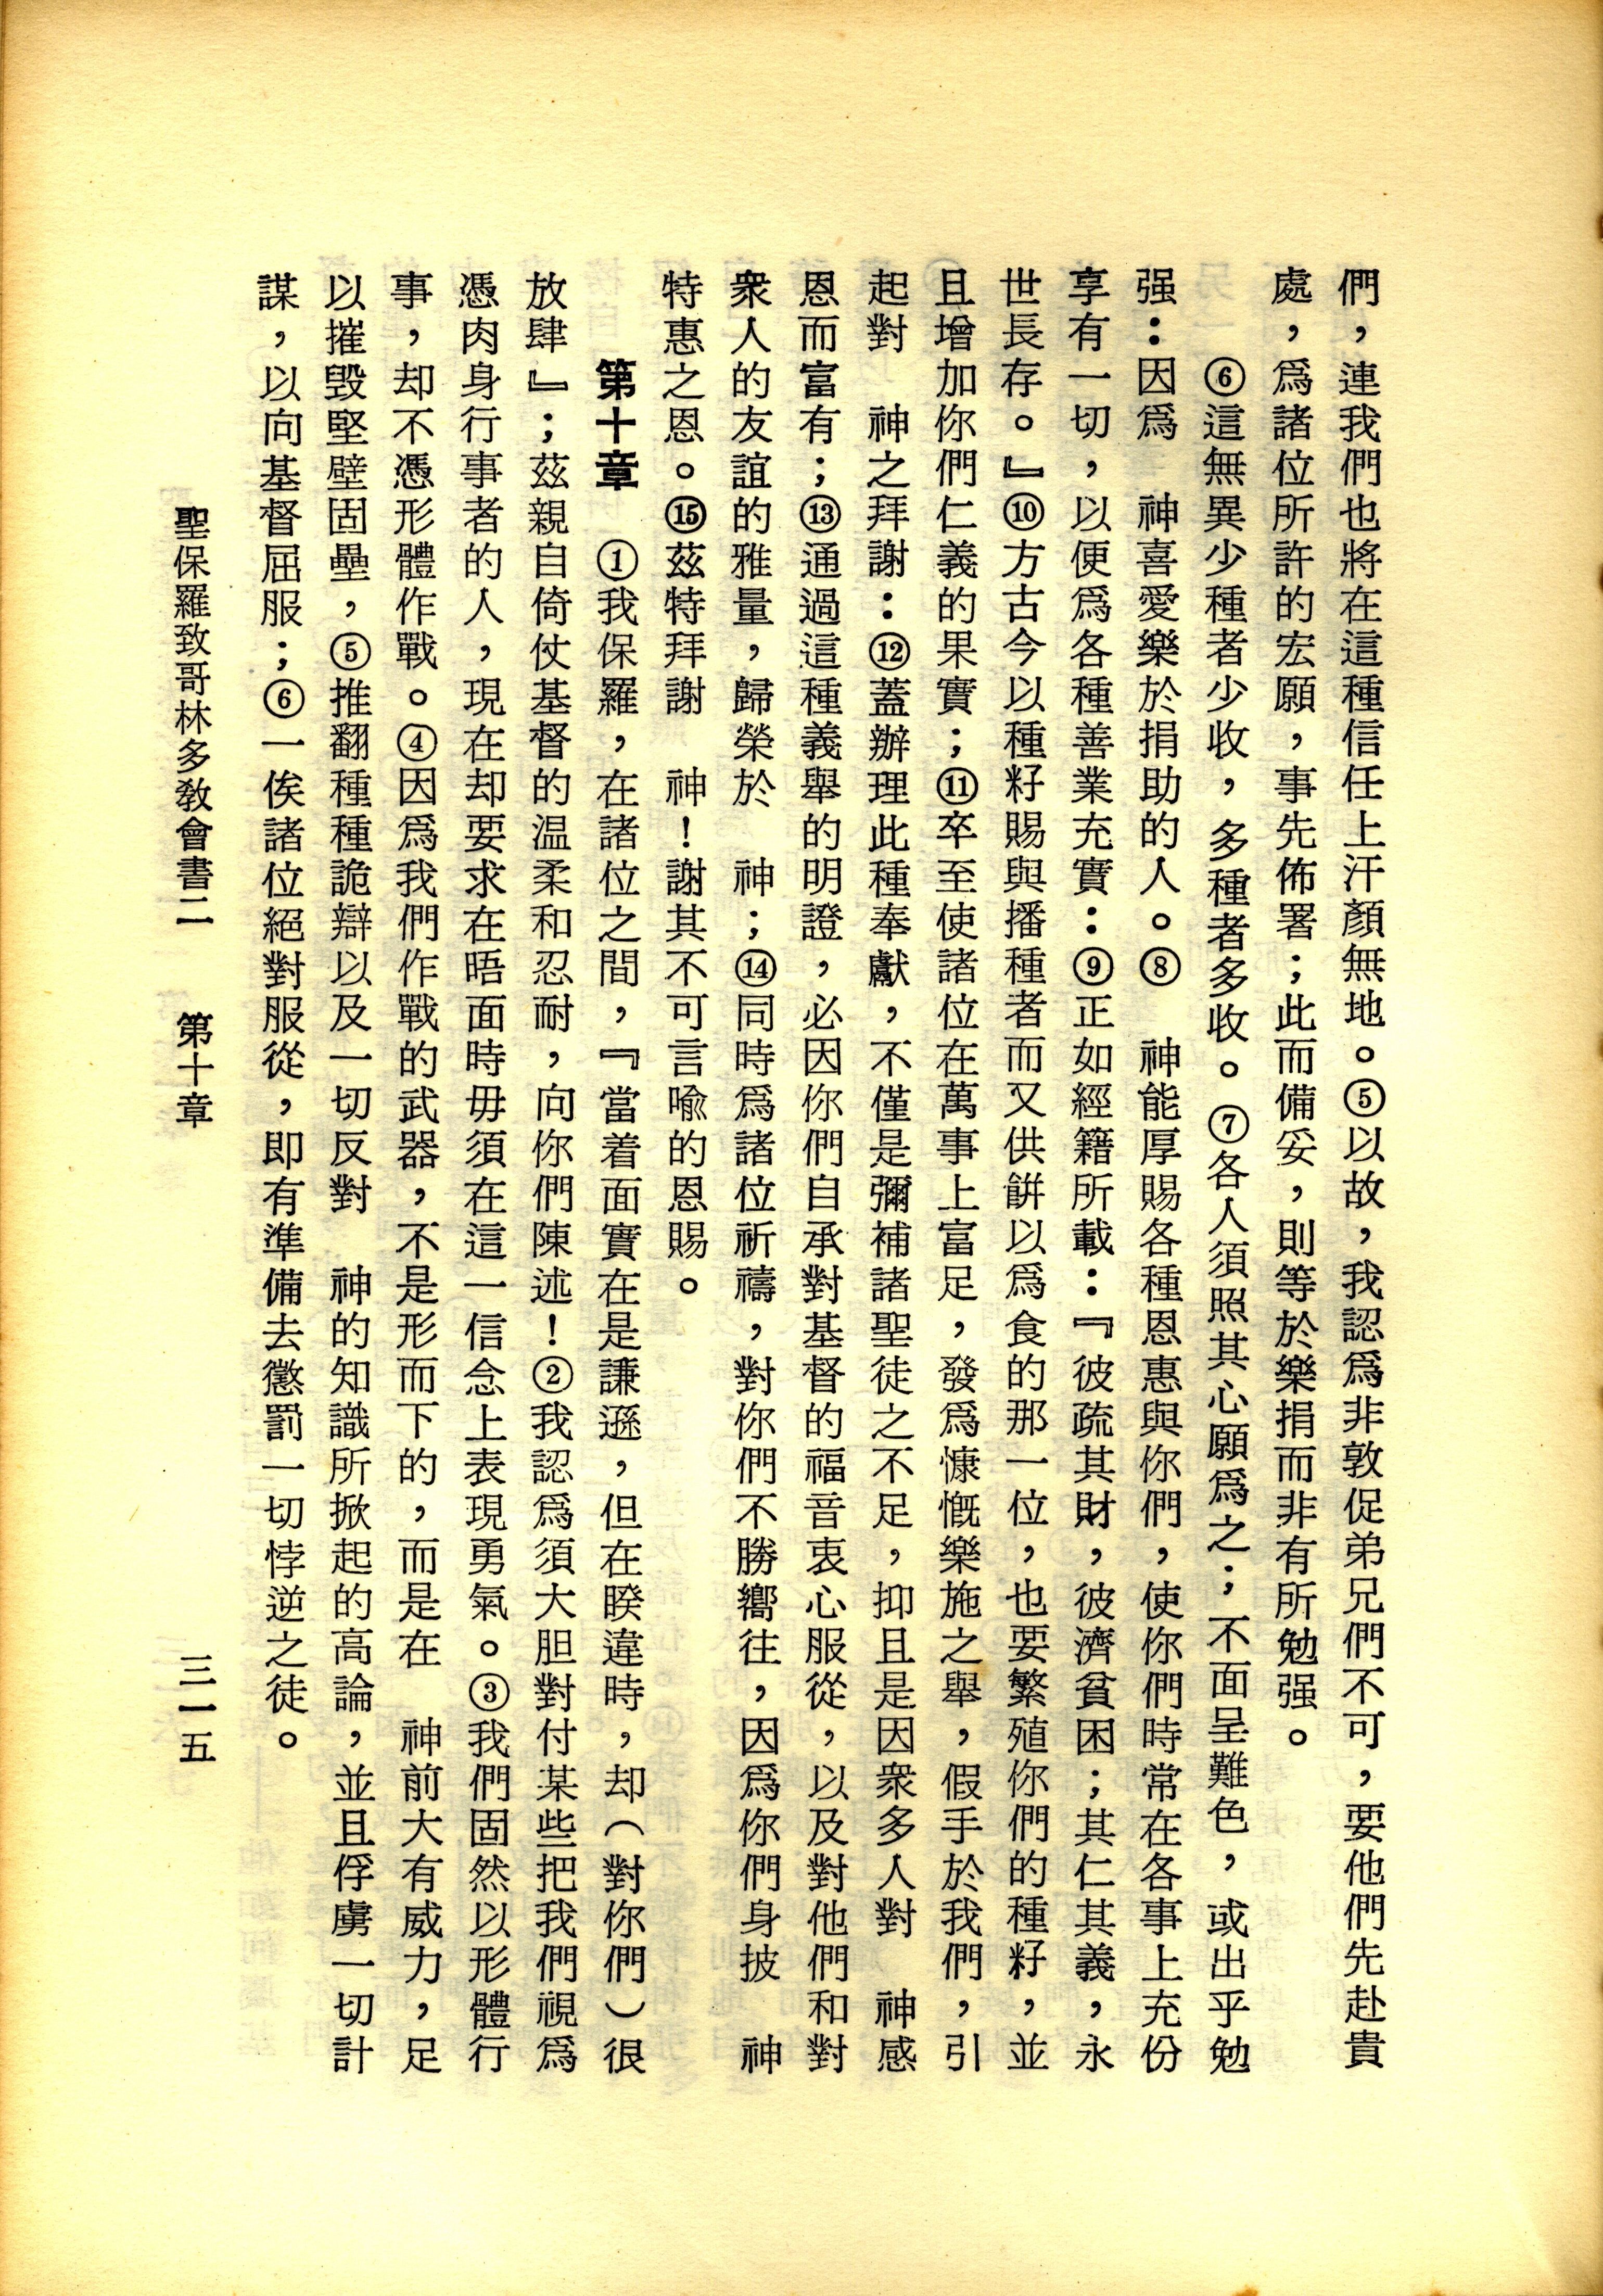 們，連我們也將在這種信任上汗顏無地。⑤以故，我認爲非敦促弟兄們不可，要他們先赴貴
處，爲諸位所許的宏願，事先佈署；此而備妥，則等於樂捐而非有所勉强。
⑥這無異少種者少收，多種者多收。⑦各人須照其心願爲之；不面呈難色，或出乎勉
强：因爲　神喜愛樂於捐助的人。⑧　神能厚賜各種恩惠與你們，使你們時常在各事上充份
享有一切，以便爲各種善業充實：⑨正如經籍所載：『彼疏其財，彼濟貧困；其仁其義，永
世長存。』⑩方古今以種籽賜與播種者而又供餅以爲食的那一位，也要繁殖你們的種籽，並
且增加你們仁義的果實；⑪卒至使諸位在萬事上富足，發爲慷慨樂施之舉，假手於我們，引
起對　神之拜謝：⑫蓋辦理此種奉獻，不僅是彌補諸聖徒之不足，抑且是因衆多人對　神感
恩而富有；⑬通過這種義舉的明證，必因你們自承對基督的福音衷心服從，以及對他們和對
衆人的友誼的雅量，歸榮於　神；⑭同時爲諸位祈禱，對你們不勝嚮往，因爲你們身披　神
特惠之恩。⑮茲特拜謝　神！謝其不可言喩的恩賜。
第十章　①我保羅，在諸位之間，『當着面實在是謙遜，但在睽違時，却（對你們）很
放肆』；茲親自倚仗基督的温柔和忍耐，向你們陳述！②我認爲須大胆對付某些把我們視爲
憑肉身行事者的人，現在却要求在晤面時毋須在這一信念上表現勇氣。③我們固然以形體行
事，却不憑形體作戰。④因爲我們作戰的武器，不是形而下的，而是在　神前大有威力，足
以摧毀堅壁固壘，⑤推翻種種詭辯以及一切反對　神的知識所掀起的高論，並且俘虜一切計
謀，以向基督屈服；⑥一俟諸位絕對服從，即有準備去懲罰一切悖逆之徒。
聖保羅致哥林多敎會書二　第十章　三一五